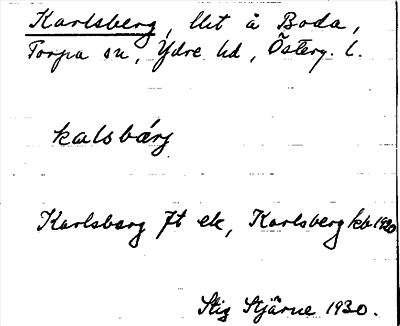 Karlsberg, lht å Boda,
Torpa sn, Ydre hd, Österg. l.
kalsbárj
Karlsberg Jt ek, Karlsberg kb 1920
Stig Stjärne 1930.